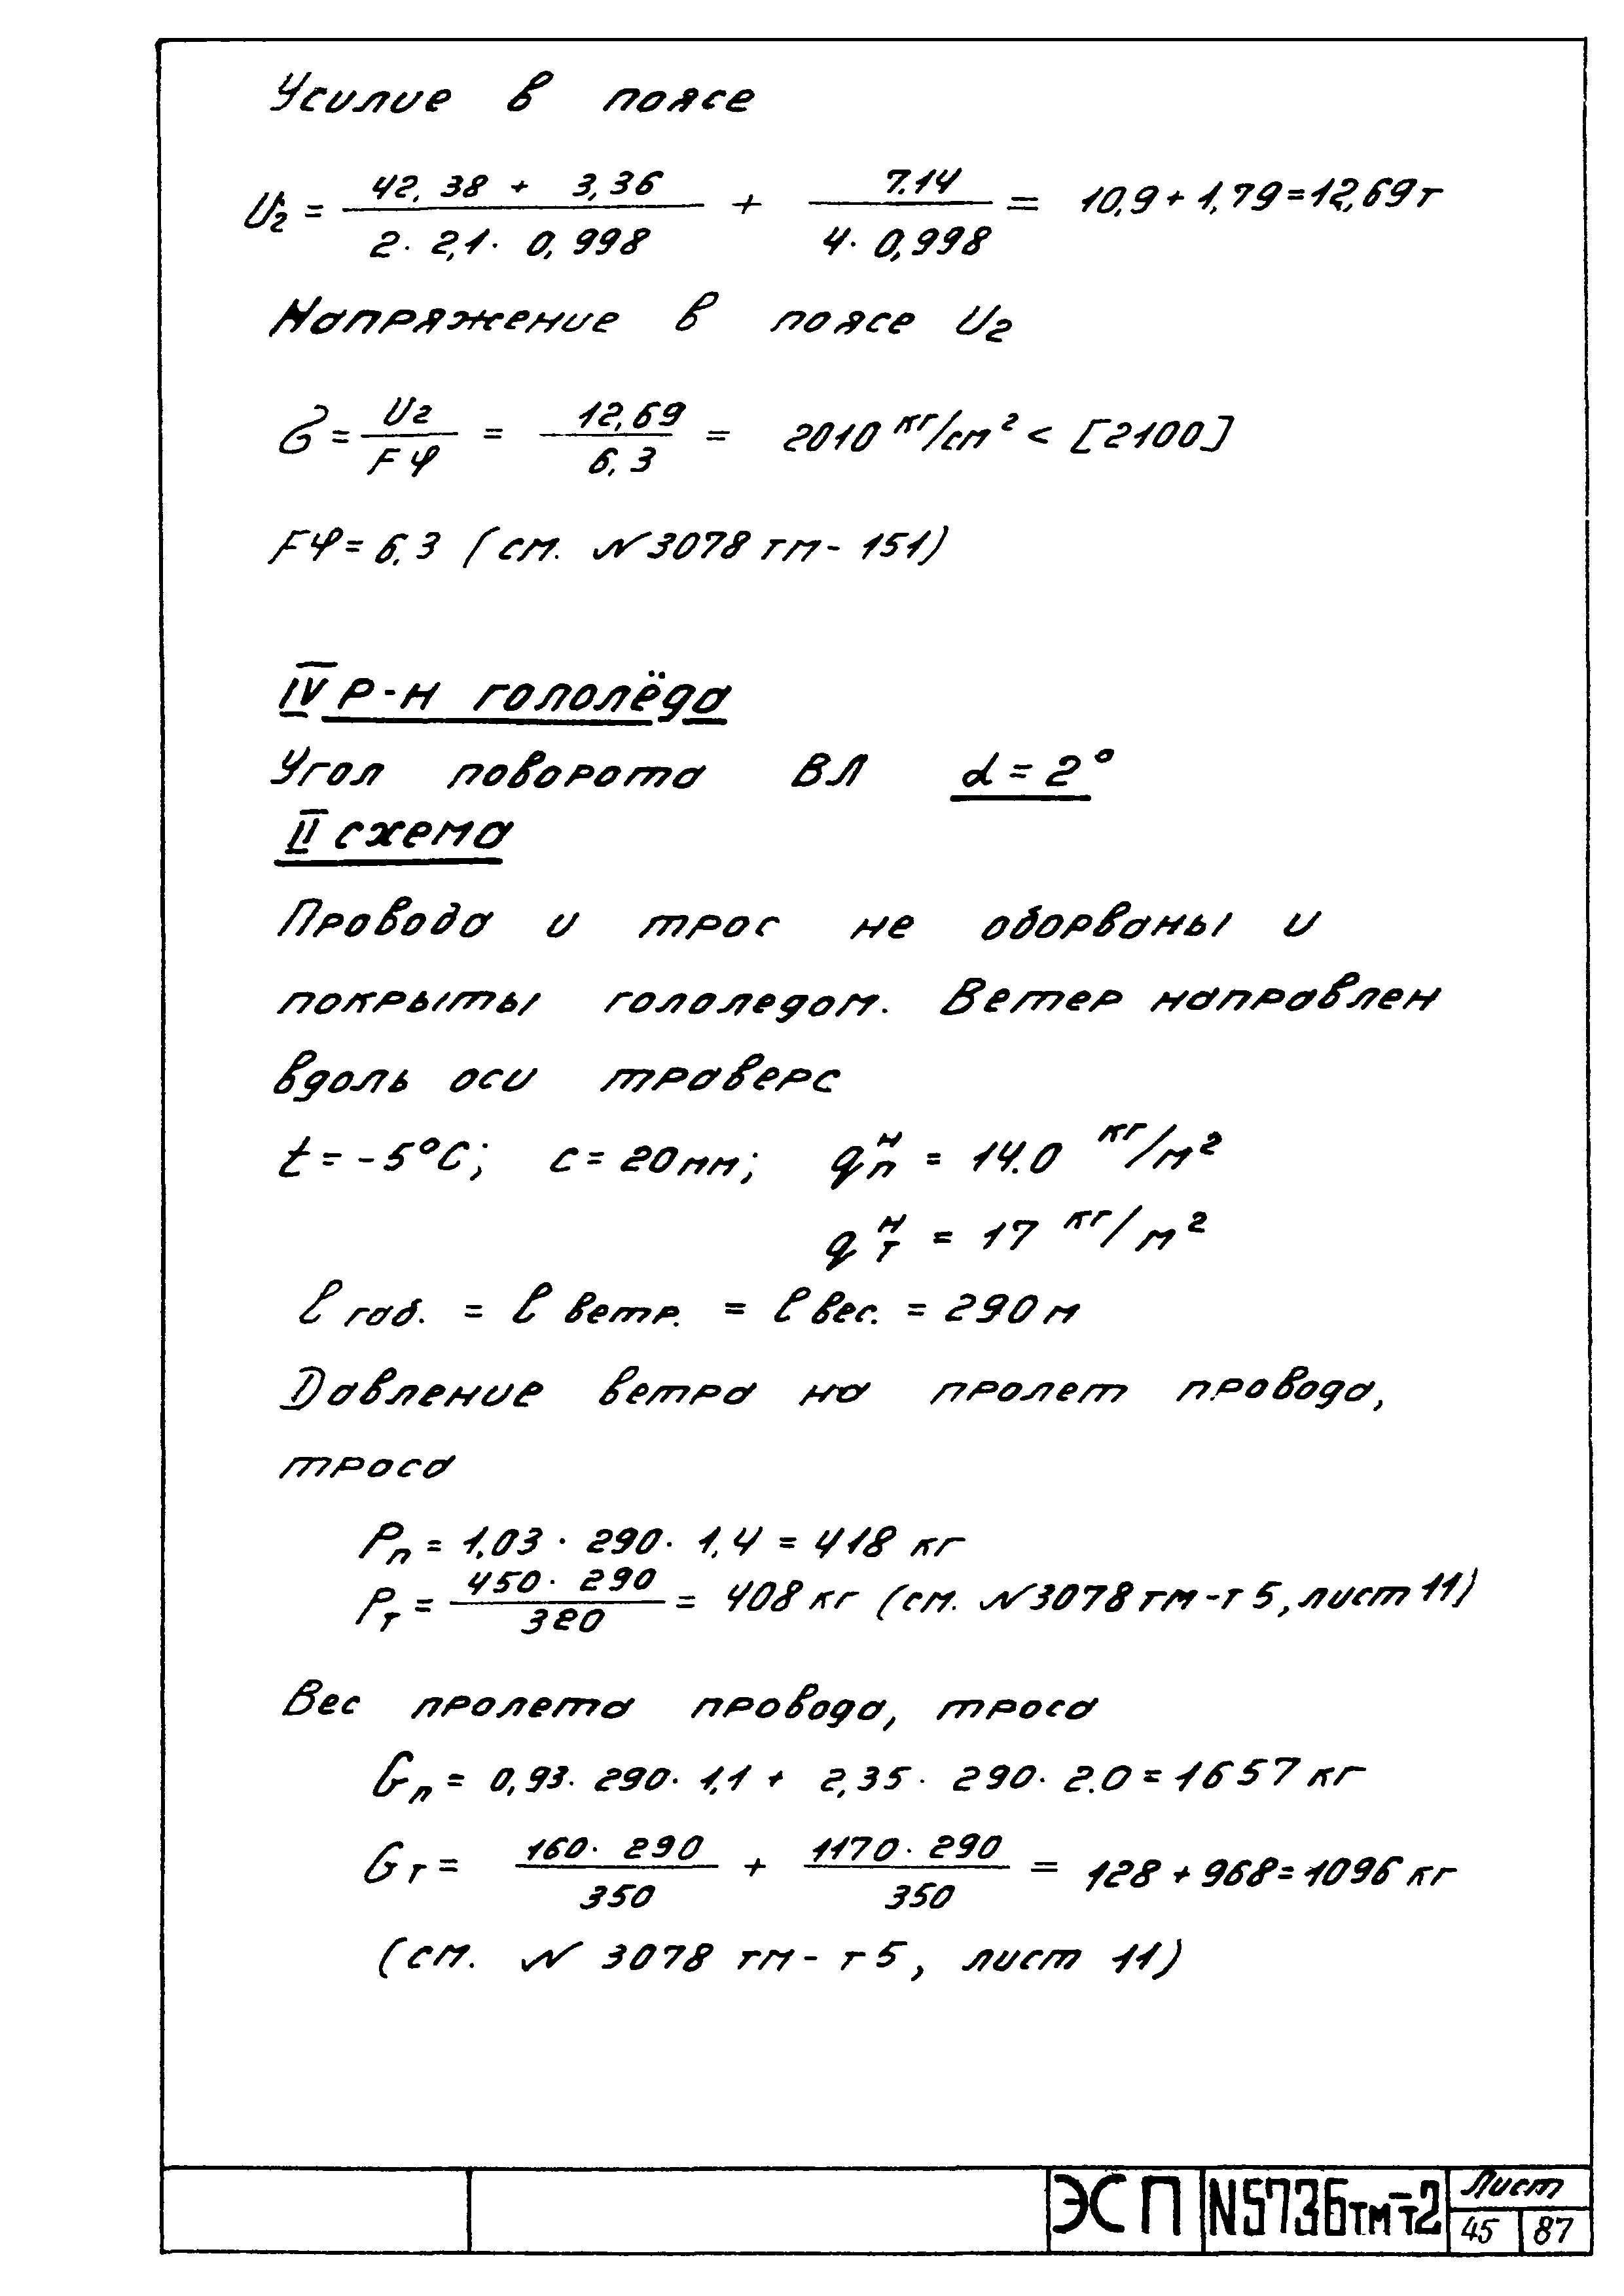 Усилие в поясе
U₂ = (42,38 + 3,36)/(2 · 2,1 · 0,998) + 7.14/(4 · 0,998) = 10,9 + 1,79 = 12,69 т
Напряжение в поясе U₂
σ = U₂/Fφ = 12,69/6,3 = 2010 кг/см² < [2100]
Fφ = 6,3 (см. №3078 тм - 151)
IV р-н гололёда
Угол поворота ВЛ α = 2°
II схема
Провода и трос не оборваны и
покрыты гололедом. Ветер направлен
вдоль оси траверс
t = -5°С; с = 20мм; qпн = 14.0 кг/м²
qтн = 17 кг/м²
ℓ габ. = ℓ ветр. = ℓ вес. = 290 м
Давление ветра на пролет провода,
троса
Pп = 1,03 · 290 · 1,4 = 418 кг
Pт = 450 · 290/320 = 408 кг (см. №3078 тм - т 5, лист 11)
Вес пролета провода, троса
Gп = 0,93 · 290 · 1,1 + 2,35 · 290 · 2.0 = 1657 кг
Gт = 160 · 290/350 + 1170 · 290/350 = 128 + 968 = 1096 кг
(см. № 3078 тм - т 5, лист 11)
ЭСП N5736тм-т2 Лист
45 87